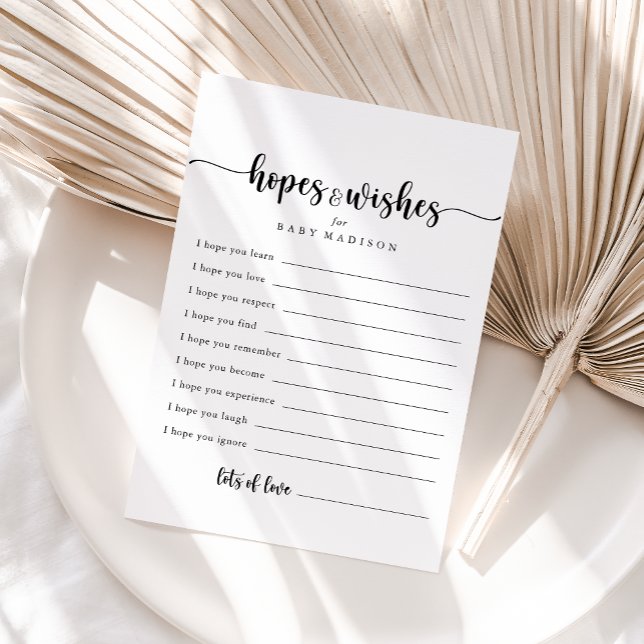 hopes & wishes
for
BABY MADISON
I hope you learn
I hope you love
I hope you respect
I hope you find
I hope you remember
I hope you become
I hope you experience
I hope you laugh
I hope you ignore
lots of love